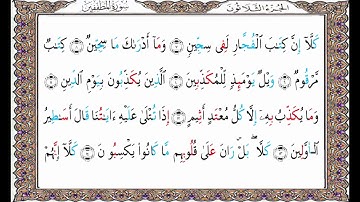 الجزء الثلاثون
سورة المطففين
كَلَّا إِنَّ كِتَٰبَ ٱلْفُجَّارِ لَفِى سِجِّينٍ ۝٧ وَمَآ أَدْرَىٰكَ مَا سِجِّينٌ ۝٨ كِتَٰبٌ
مَّرْقُومٌ ۝٩ وَيْلٌ يَوْمَئِذٍ لِّلْمُكَذِّبِينَ ۝١٠ ٱلَّذِينَ يُكَذِّبُونَ بِيَوْمِ ٱلدِّينِ ۝١١
وَمَا يُكَذِّبُ بِهِۦٓ إِلَّا كُلُّ مُعْتَدٍ أَثِيمٍ ۝١٢ إِذَا تُتْلَىٰ عَلَيْهِ ءَايَٰتُنَا قَالَ أَسَٰطِيرُ
ٱلْأَوَّلِينَ ۝١٣ كَلَّا ۖ بَلْ ۜ رَانَ عَلَىٰ قُلُوبِهِم مَّا كَانُوا۟ يَكْسِبُونَ ۝١٤ كَلَّآ إِنَّهُمْ